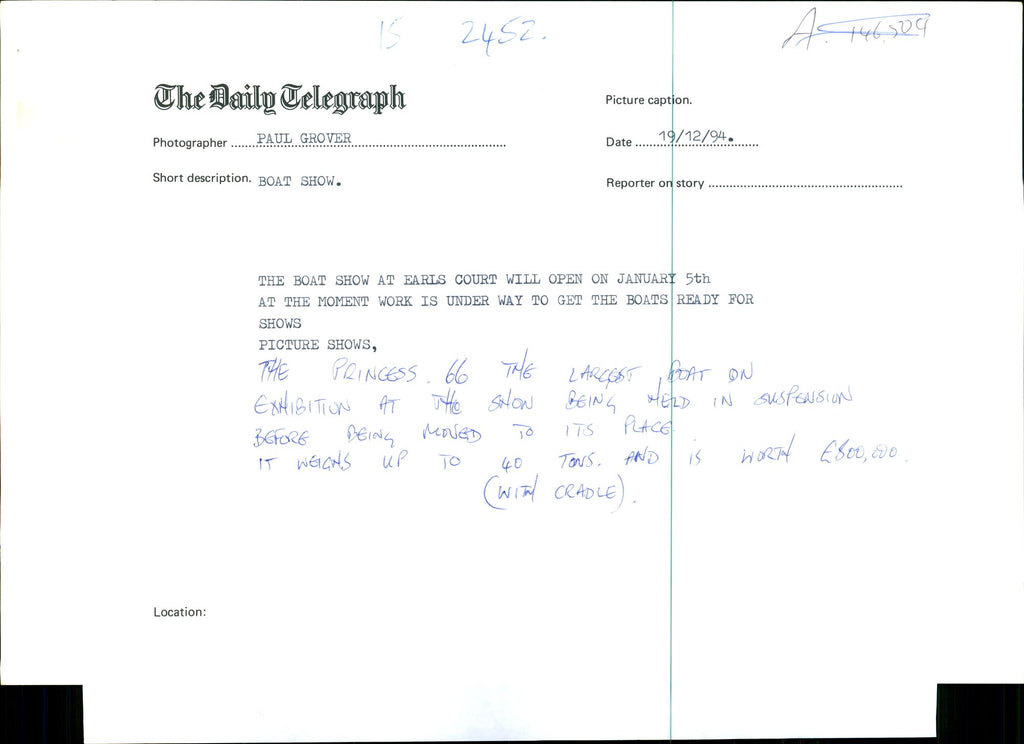 15 2452.
A. 146509
The Daily Telegraph
Picture caption.
Photographer ...... PAUL GROVER
Date ...... 19/12/94.
Short description. BOAT SHOW.
Reporter on story ......
THE BOAT SHOW AT EARLS COURT WILL OPEN ON JANUARY 5th
AT THE MOMENT WORK IS UNDER WAY TO GET THE BOATS READY FOR
SHOWS
PICTURE SHOWS,
THE PRINCESS. 66 THE LARGEST BOAT ON
EXHIBITION AT THE SHOW BEING HELD IN SUSPENSION
BEFORE BEING MOVED TO ITS PLACE
IT WEIGHS UP TO 40 TONS. AND IS WORTH £800,000.
(WITH CRADLE).
Location: